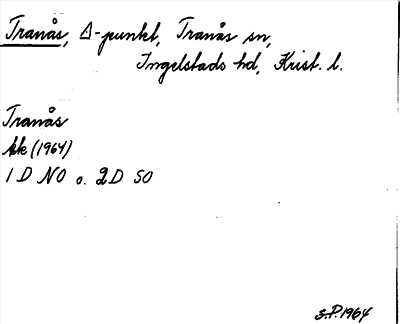 Tranås, Δ-punkt, Tranås sn,
Ingelstads hd, Krist. l.
Tranås
kk (1964)
1 D NO o. 2D SO
S.P. 1964